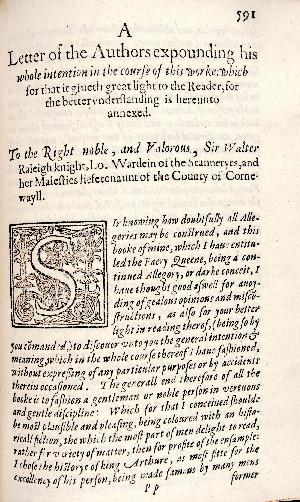 591
A
Letter of the Authors expounding his
whole intention in the course of this worke: which
for that it giueth great light to the Reader, for
the better vnderstanding is hereunto
annexed.
To the Right noble, and Valorous, Sir Walter
Raleigh knight, Lo. Wardein of the Stanneryes, and
her Maiesties liefetenaunt of the County of Corne-
wayll.
SIr knowing how doubtfully all Alle-
gories may be construed, and this
booke of mine, which I haue entitu-
led the Faery Queene, being a con-
tinued Allegory, or darke conceit, I
haue thought good aswell for auoy-
ding of gealous opinions and misco-
structions, as also for your better
light in reading therof, (being so by
you commanded,) to discouer vnto you the general intention &
meaning, which in the whole course thereof I haue fashioned,
without expressing of any particular purposes or by accidents
therein occasioned. The generall end therefore of all the
booke is to fashion a gentleman or noble person in vertuous
and gentle discipline: Which for that I conceiued shoulde
be most plausible and pleasing, being coloured with an histo-
ricall fiction, the which the most part of men delight to read,
rather for variety of matter, then for profite of the ensample:
I chose the historye of king Arthure, as most fitte for the
excellency of his person, being made famous by many mens
P p
former